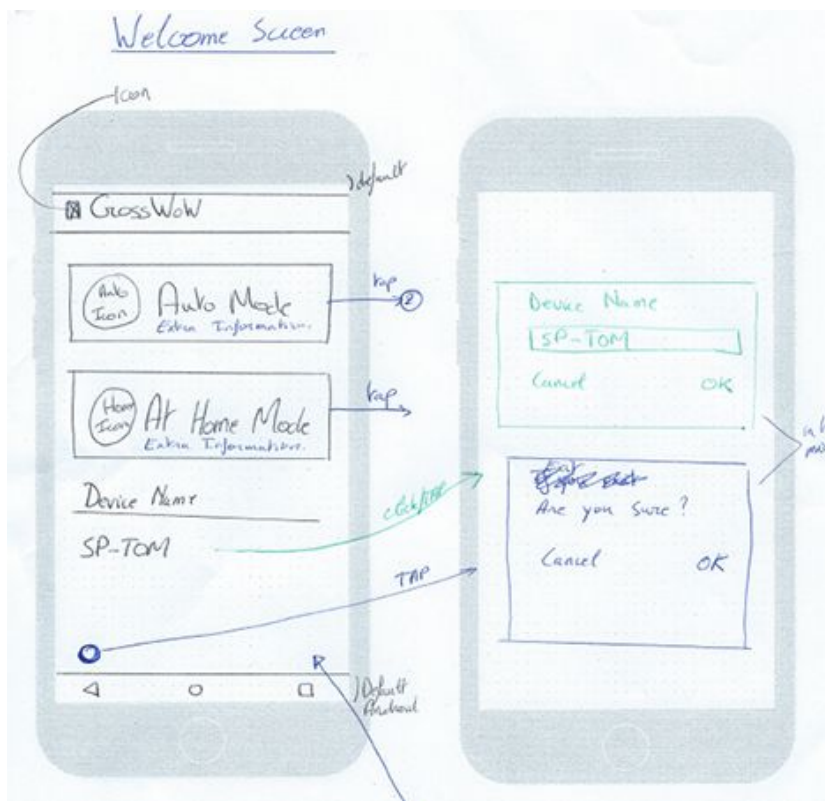 Welcome Screen
Icon
default
CrossWoW
Auto
Icon
Auto Mode
Extra Information.
tap
2
Home
Icon
At Home Mode
Extra Information.
tap
Device Name
SP-TOM
click/
TAP
Default
Android
Device Name
SP-TOM
Cancel
OK
Are you Sure?
Cancel
OK